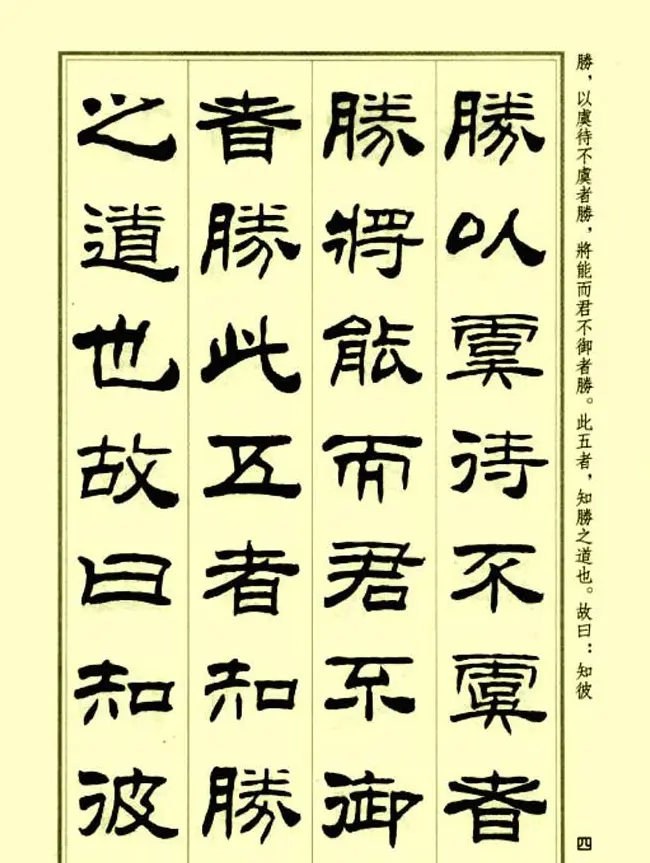 勝以虞待不虞者
勝將能而君不御
者勝此五者知勝
之道也故曰知彼
勝，以虞待不虞者勝，將能而君不御者勝。此五者，知勝之道也。故曰：知彼
四